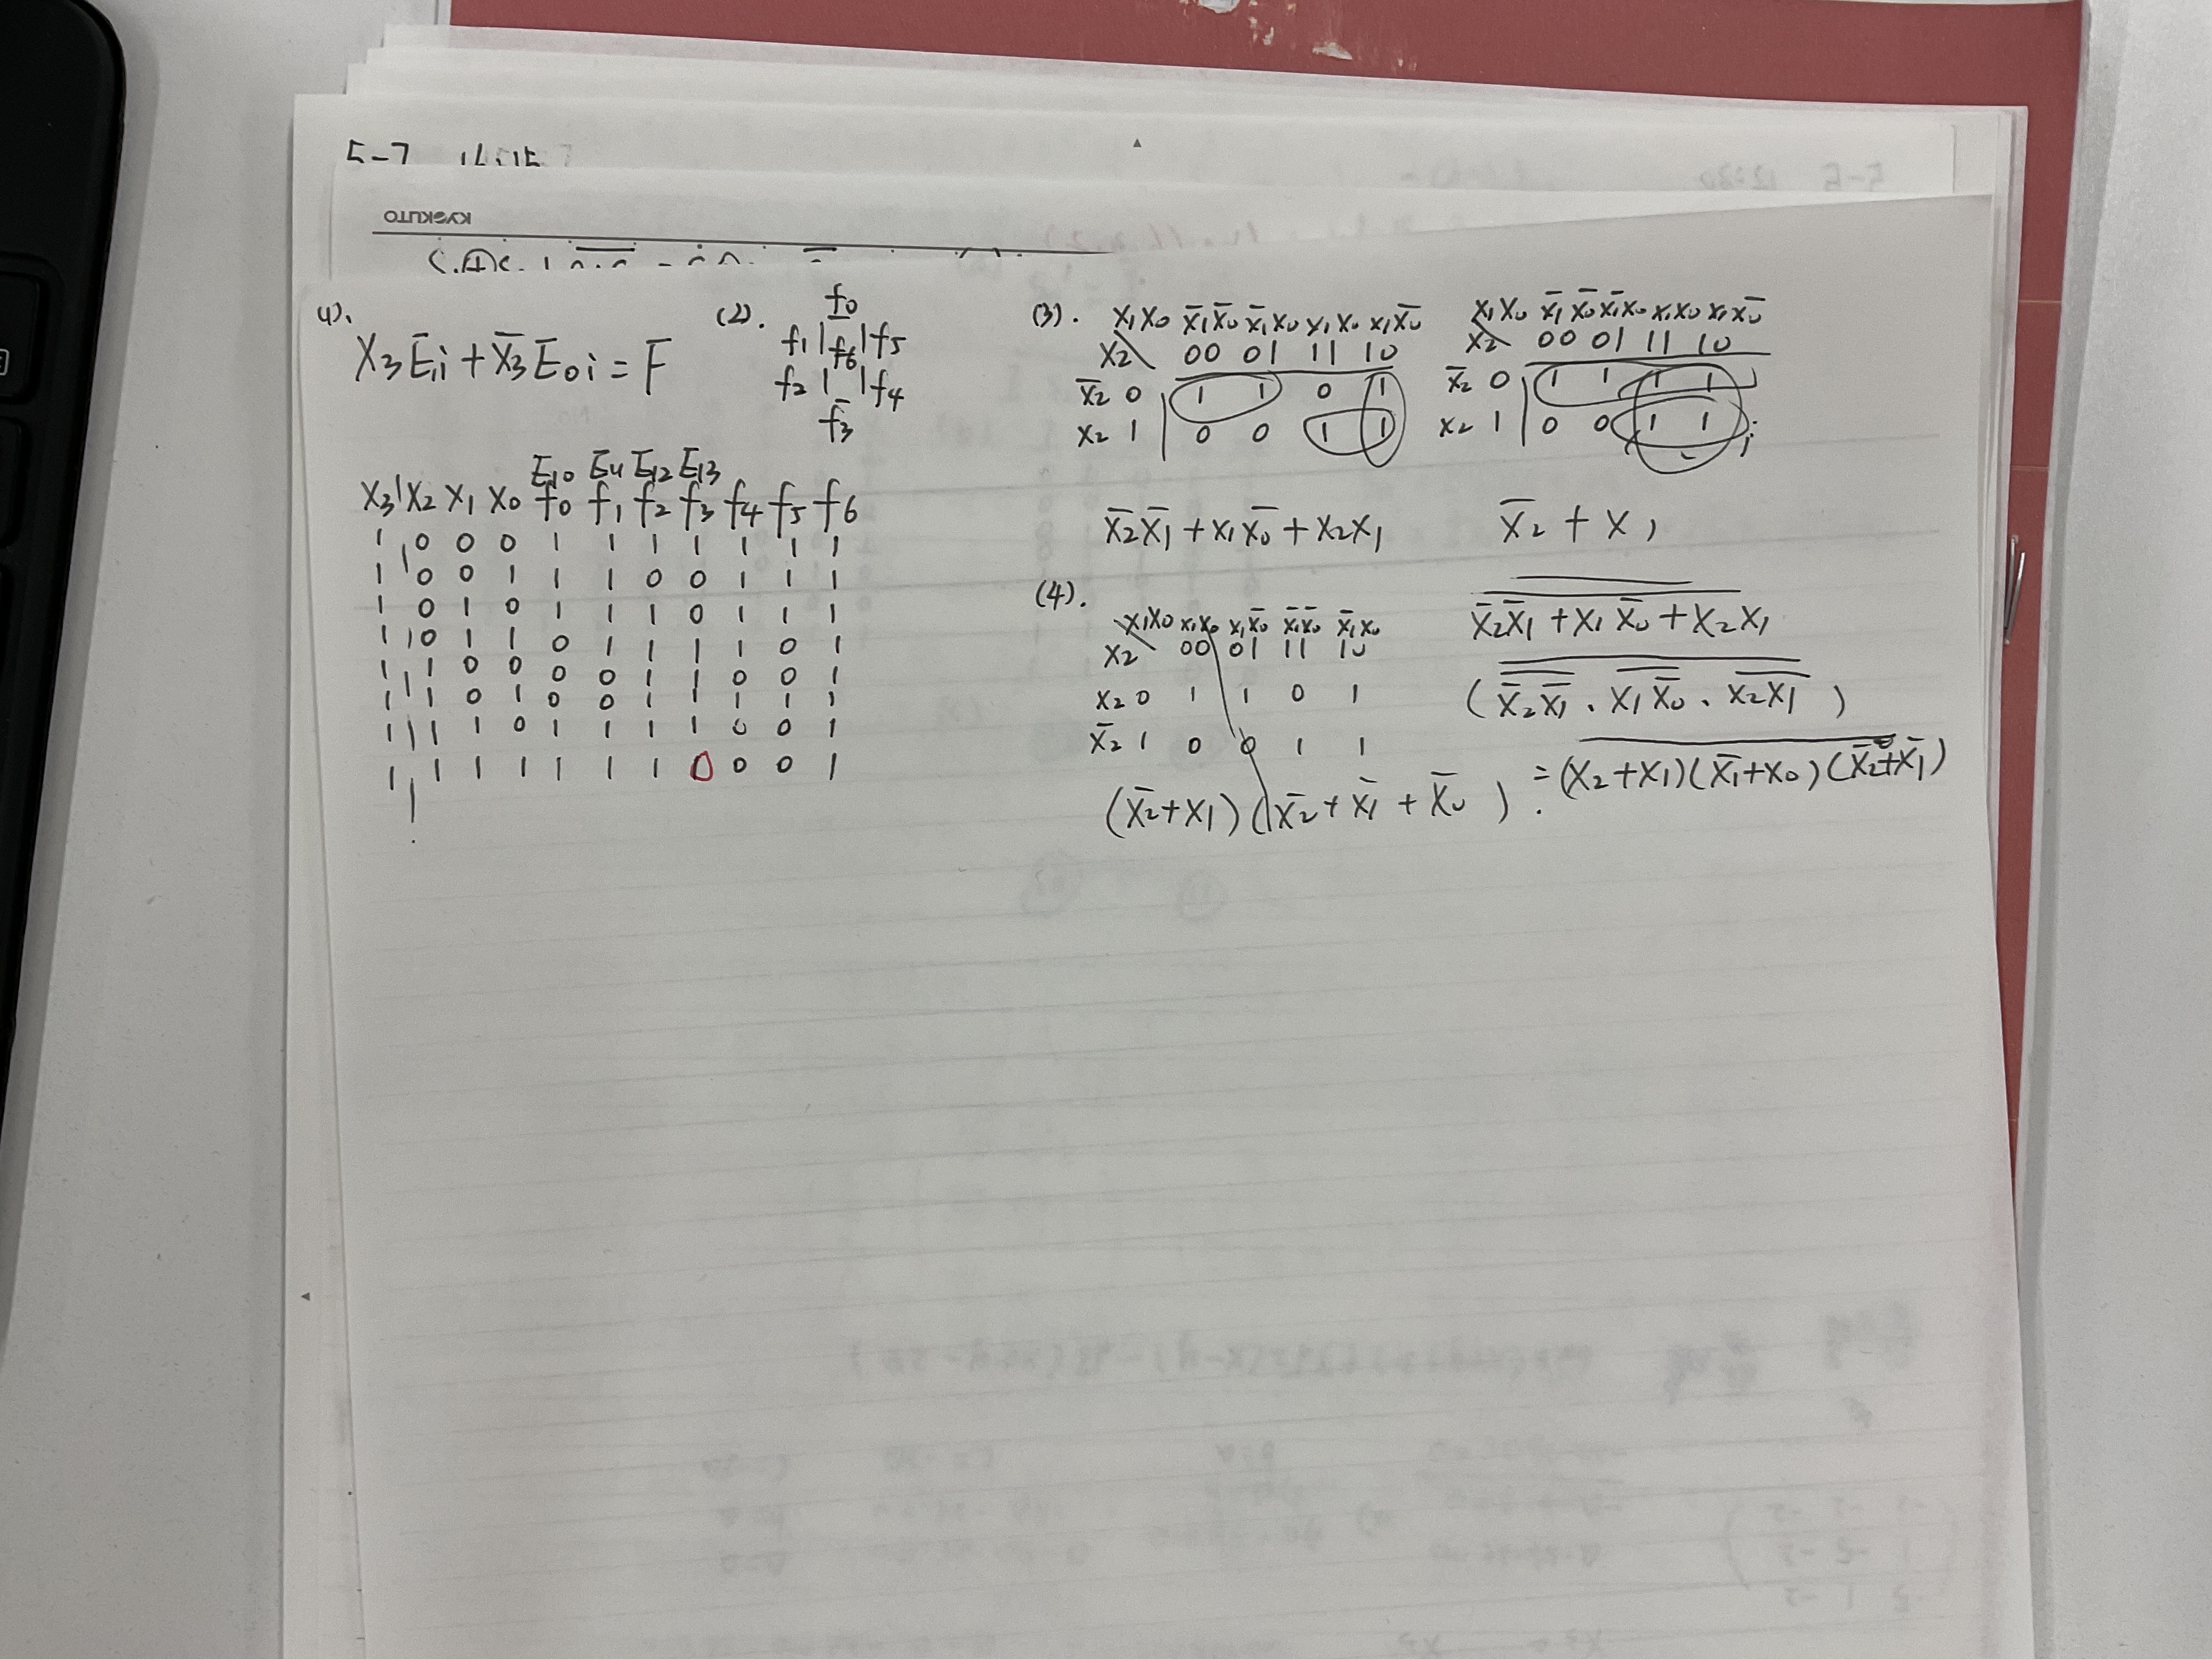 5-7
KYOKUTO
(1).
X₃E₁i + X̄₃E₀i = F
(2).
f₀
f₁ | f₆ | f₅
f₂ | | f₄
f₃
E₁₀ E₁₁ E₁₂ E₁₃
X₃ X₂ X₁ X₀ f₀ f₁ f₂ f₃ f₄ f₅ f₆
1 0 0 0 1 1 1 1 1 1 1
1 0 0 1 1 1 0 0 1 1 1
1 0 1 0 1 1 1 0 1 1 1
1 0 1 1 0 1 1 1 1 0 1
1 1 0 0 0 0 1 1 0 0 1
1 1 0 1 0 0 1 1 1 1 1
1 1 1 0 1 1 1 1 0 0 1
1 1 1 1 1 1 1 0 0 0 1
(3).
X₁X₀ X̄₁X̄₀ X̄₁X₀ X₁X₀ X₁X̄₀
X₂ 00 01 11 10
X̄₂ 0 1 1 0 1
X₂ 1 0 0 1 1
X̄₂X̄₁ + X₁X̄₀ + X₂X₁
X₁X₀ X̄₁X̄₀ X̄₁X₀ X₁X₀ X₁X̄₀
X₂ 00 01 11 10
X̄₂ 0 1 1 1 1
X₂ 1 0 0 1 1
X̄₂ + X₁
(4).
X₁X₀ X₁X₀ X₁X̄₀ X̄₁X̄₀ X̄₁X₀
X₂ 00 01 11 10
X₂ 0 1 1 0 1
X̄₂ 1 0 0 1 1
(X̄₂+X₁)(X̄₂+X̄₁+X̄₀)
X̄₂X̄₁ + X₁X̄₀ + X₂X₁
(X̄₂X̄₁ · X₁X̄₀ · X₂X₁)
= (X₂+X₁)(X̄₁+X₀)(X̄₂+X̄₁)